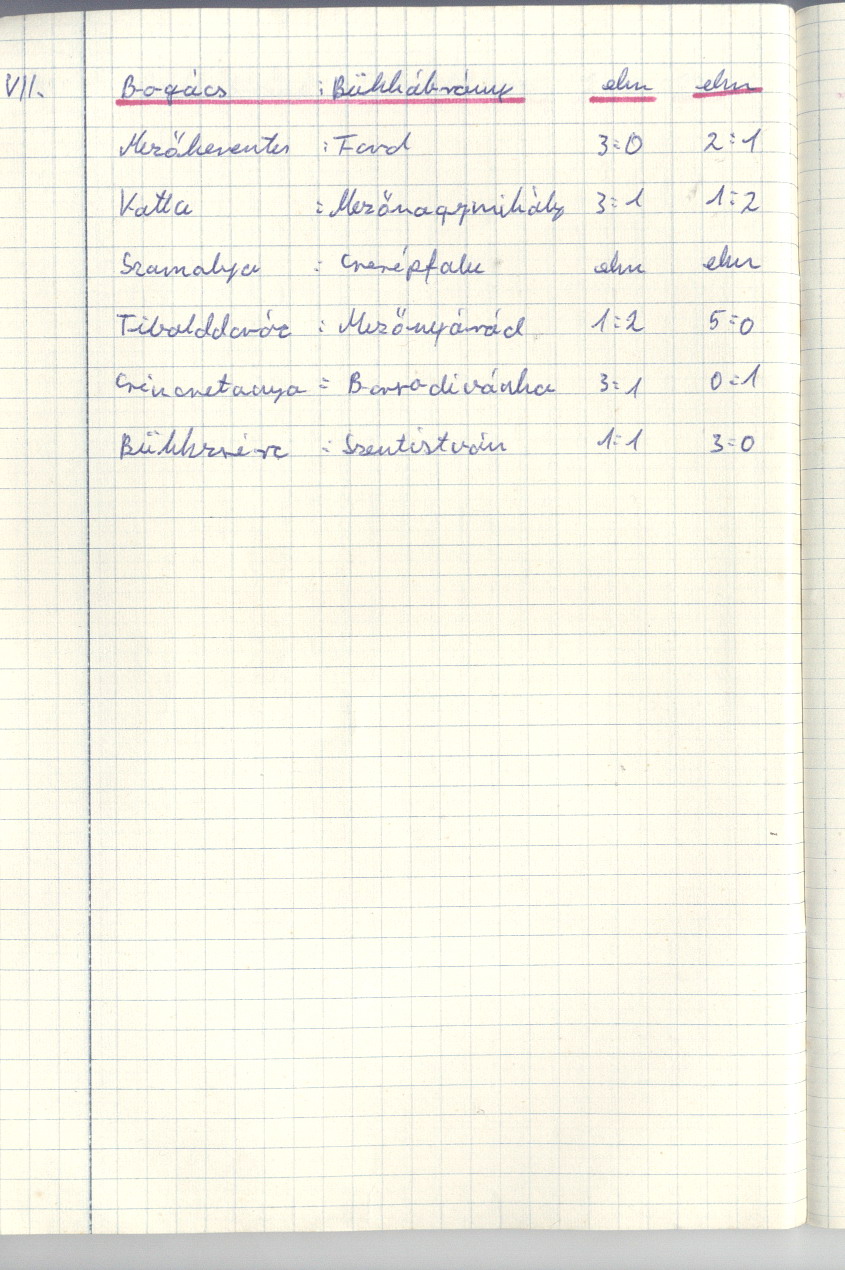 VII. Bogács : Bükkábrány elm elm
Mezőkeresztes : Tard 3:0 2:1
Vatta : Mezőnagymihály 3:1 1:2
Szomolya : Cserépfalu elm elm
Tibolddaróc : Mezőnyárád 1:2 5:0
Csincsetanya : Borsodivánka 3:1 0:1
Bükkzsérc : Szentistván 1:1 3:0